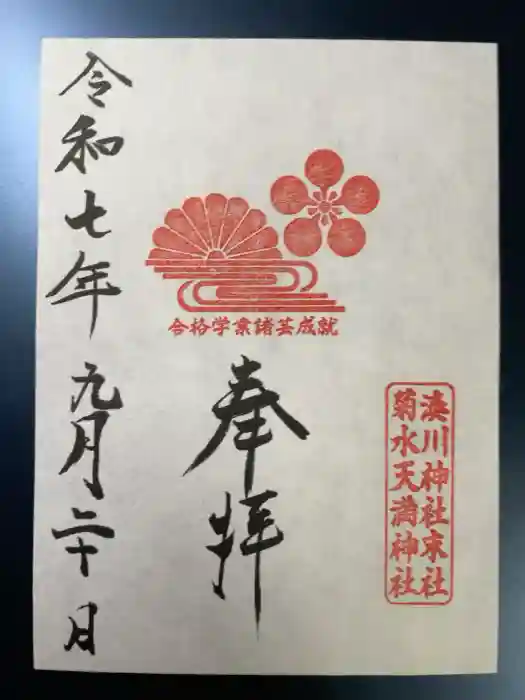 湊川神社末社
菊水天満神社
合格学業諸芸成就
奉拝
令和七年九月二十日